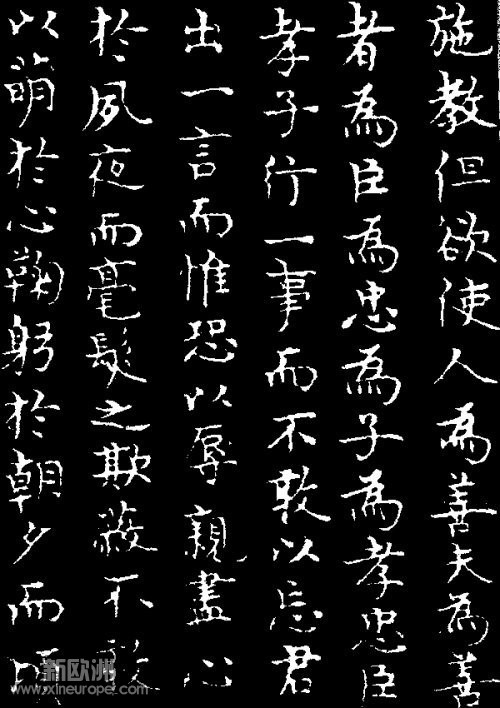 施教但欲使人為善夫為善
者為臣為忠為子為孝忠臣
孝子行一事而不敢以忘君
出一言而惟恐以辱親盡心
於夙夜而毫髮之欺蔽不敢
以萌於心鞠躬於朝夕而頃
新欧洲
www.xineurope.com